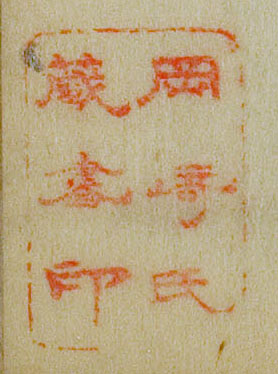 岡崎氏
蔵書印